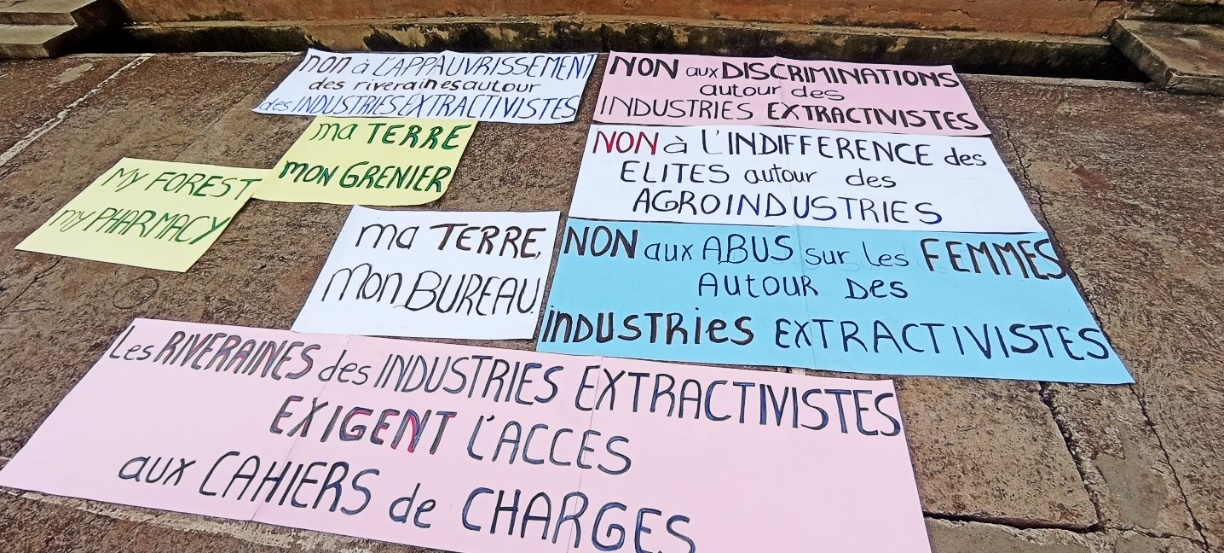 non à L'APPAUVRISSEMENT
des riveraines autour
des INDUSTRIES EXTRACTIVISTES
NON aux DISCRIMINATIONS
autour des
INDUSTRIES EXTRACTIVISTES
ma TERRE
mon GRENIER
NON à L'INDIFFERENCE des
ELITES autour des
AGROINDUSTRIES
MY FOREST
my PHARMACY
ma TERRE,
mon BUREAU.
NON aux ABUS sur les FEMMES
AUTOUR DES
INDUSTRIES EXTRACTIVISTES
Les RIVERAINES des INDUSTRIES EXTRACTIVISTES
EXIGENT L'ACCES
aux CAHIERS de CHARGES